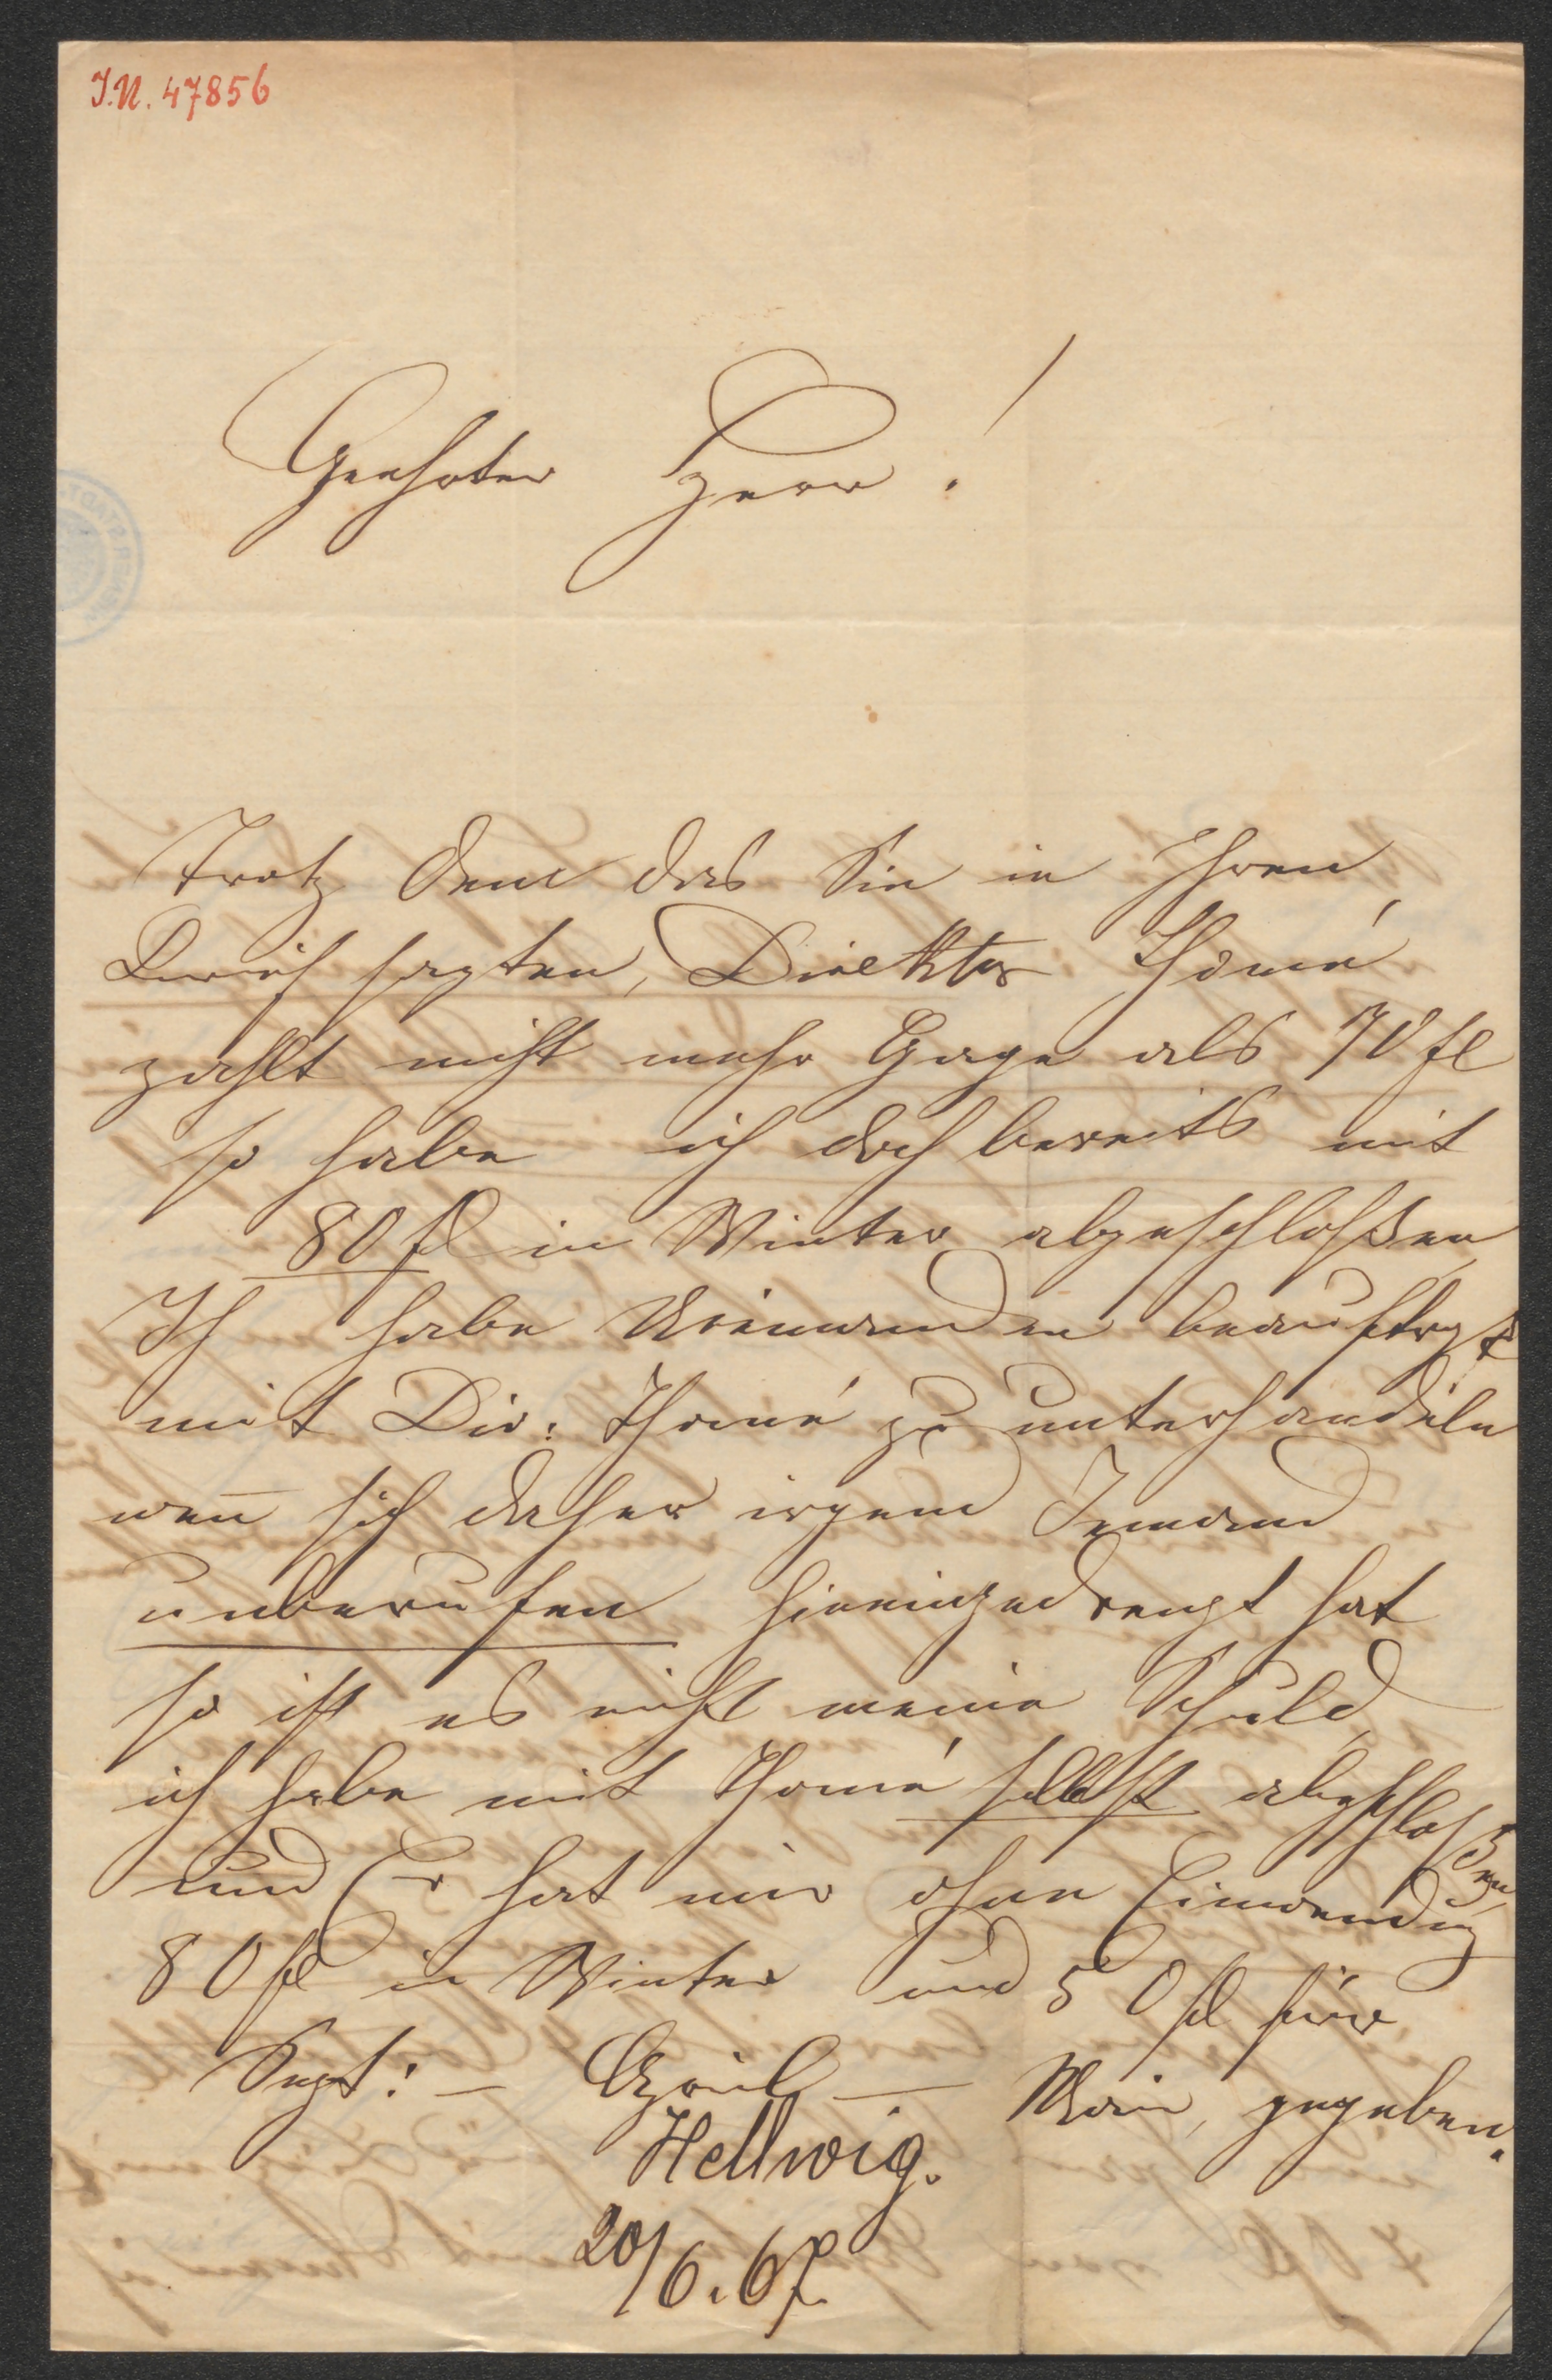 I.N. 47856
Geehrter Herr!
Trotz dem das Sie in Ihren
Brief sagten, Direktor Thomé
zahlt nicht mehr Gage als 70 fl
so habe ich doch bereits mit
80 fl in Winter abgeschloßen
Ich habe Niemanden beauftragt
mit Dir: Thomé zu unterhandeln
wen̄ sich daher irgend Jemand
unberufen hineingedrengt hat
so ist es nicht meine Schuld,
ich habe mit Thomé selbst abgeschloßen,
und Er hat mir ohne Einwendung
80 fl in Winter und 50 fl für
Sept: – April – Mai, gegeben.
Hellwig.
20/6. 67.